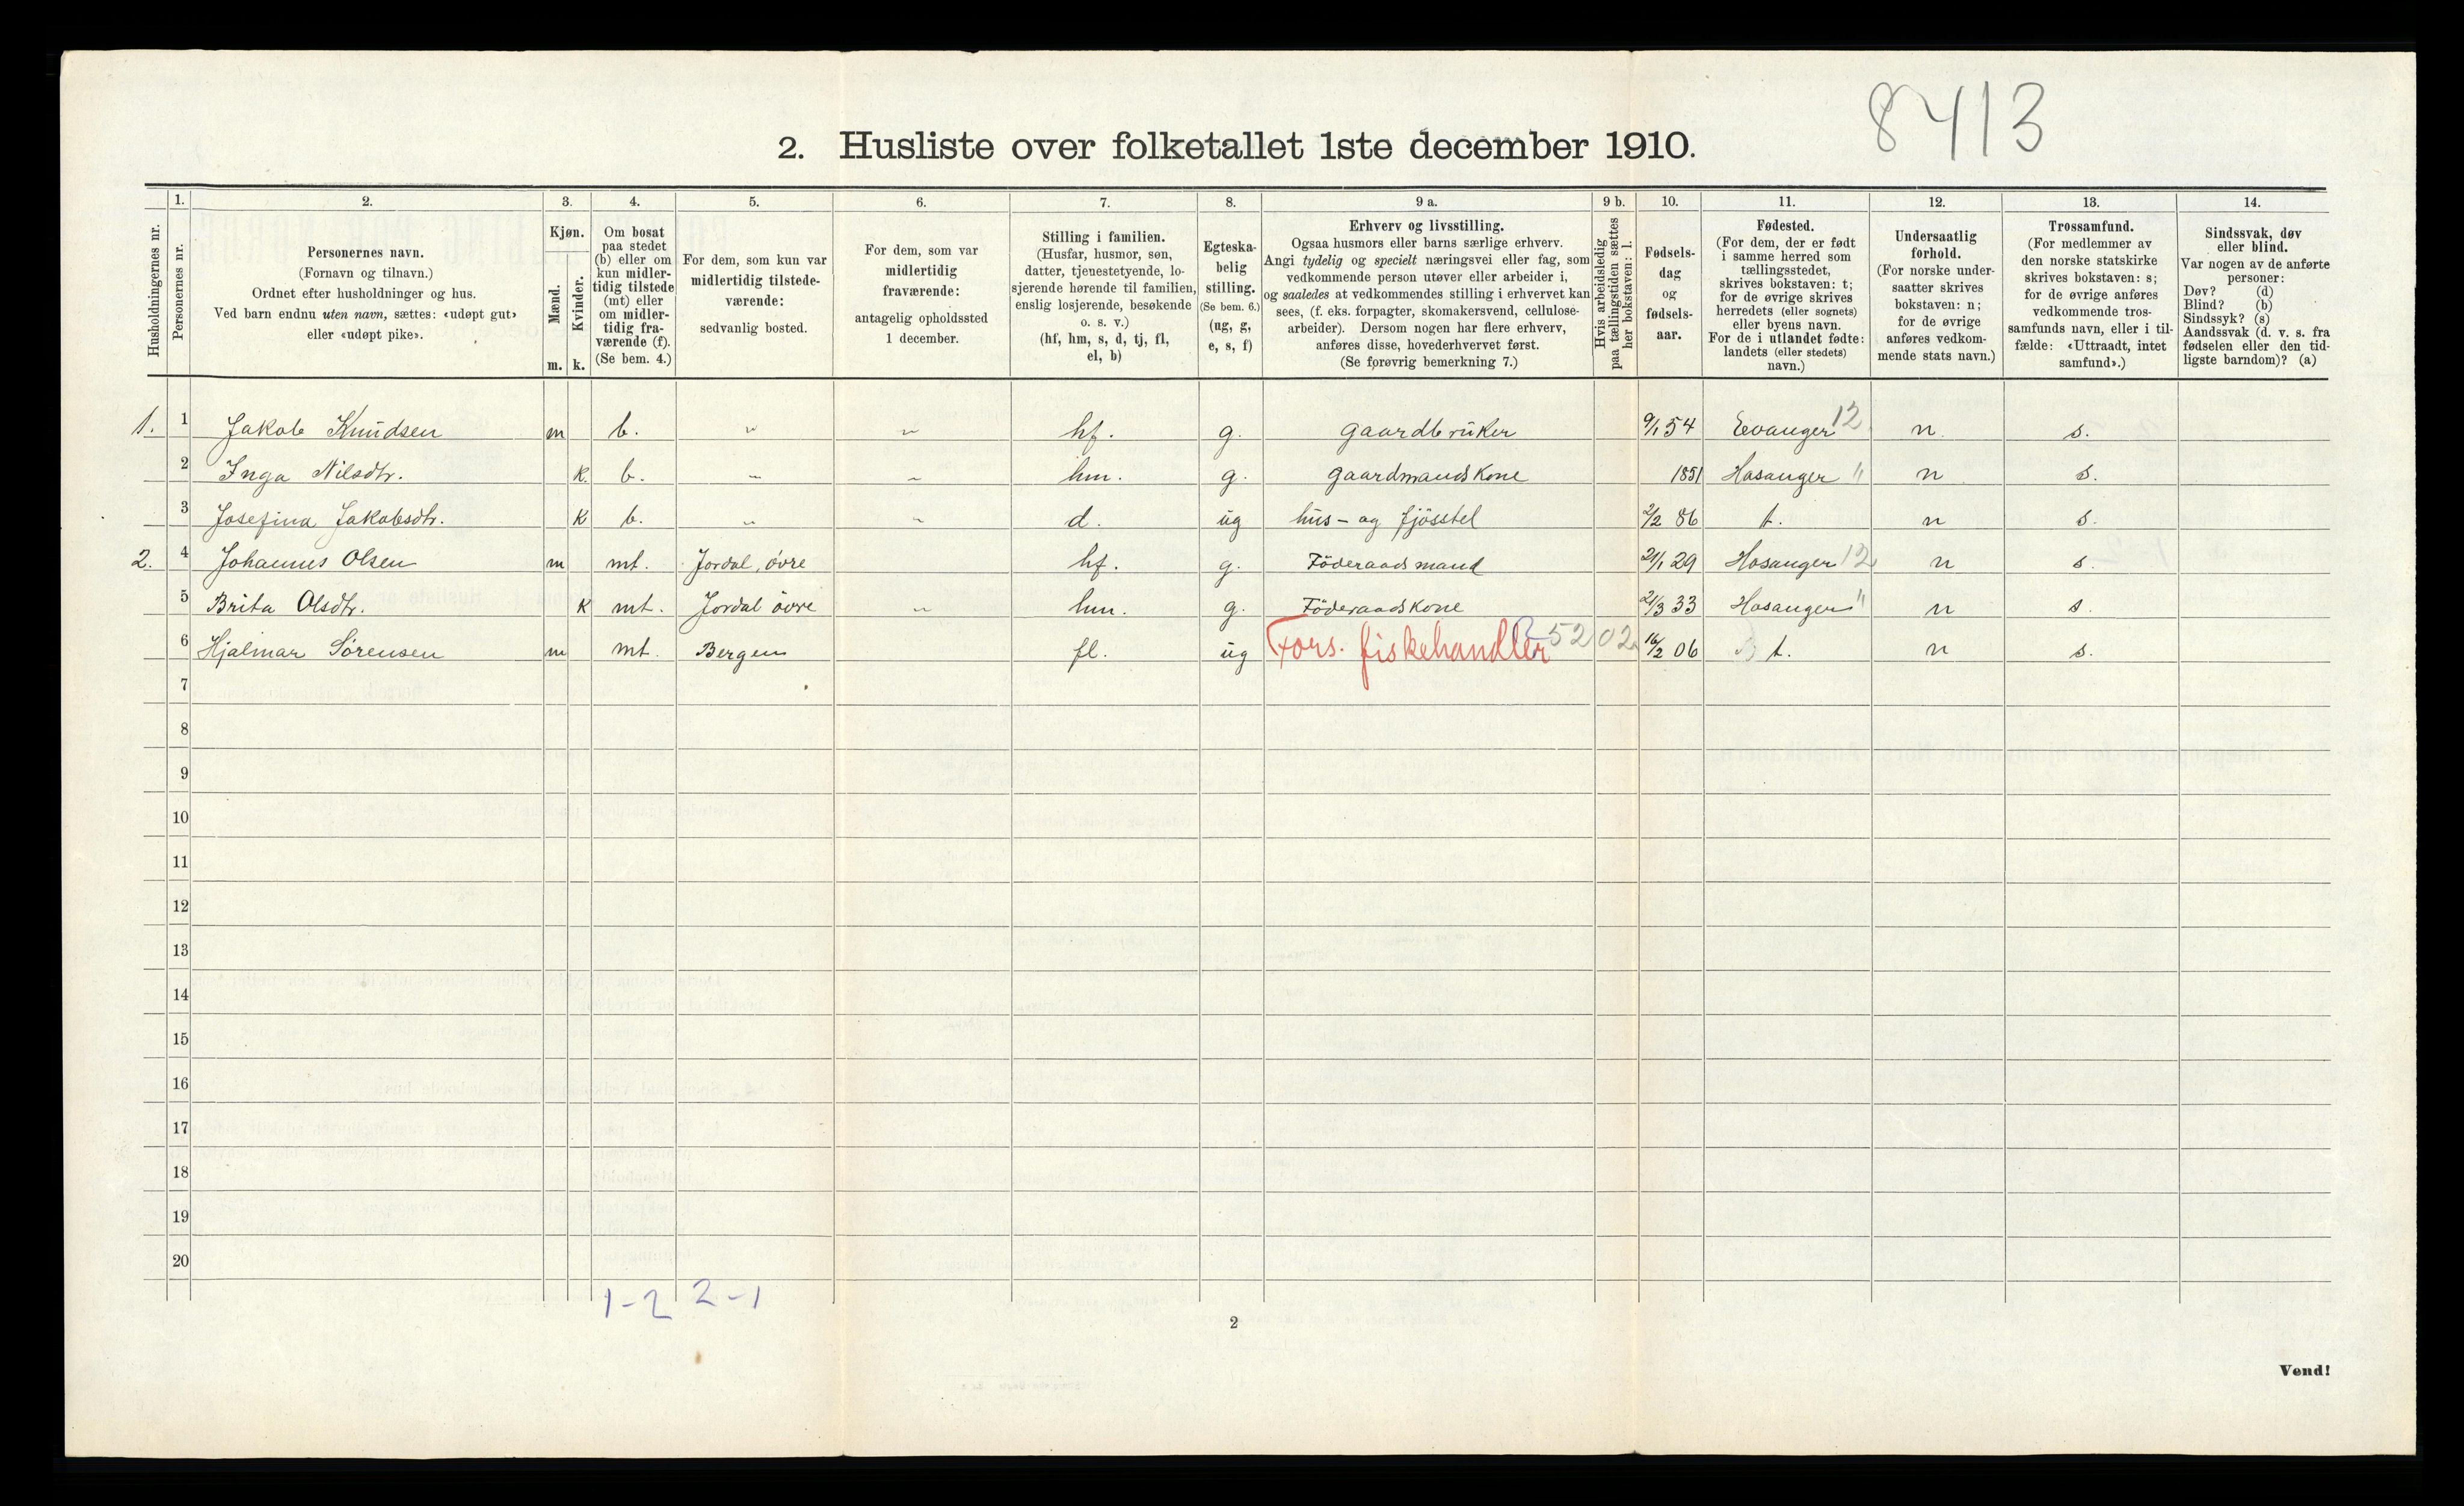 8413
2. Husliste over folketallet 1ste december 1910.
Husholdningernes nr.
1.
Personernes nr.
2.
Personernes navn.
(Fornavn og tilnavn.)
Ordnet efter husholdninger og hus.
Ved barn endnu uten navn, sættes: «udøpt gut»
eller «udøpt pike».
3.
Kjøn.
Mænd.
Kvinder.
m. k.
4.
Om bosat
paa stedet
(b) eller om
kun midler-
tidig tilstede
(mt) eller
om midler-
tidig fra-
værende (f).
(Se bem. 4.)
5.
For dem, som kun var
midlertidig tilstede-
værende:
sedvanlig bosted.
6.
For dem, som var
midlertidig
fraværende:
antagelig opholdssted
1 december.
7.
Stilling i familien.
(Husfar, husmor, søn,
datter, tjenestetyende, lo-
sjerende hørende til familien,
enslig losjerende, besøkende
o. s. v.)
(hf, hm, s, d, tj, fl,
el, b)
8.
Egteska-
belig
stilling.
(Se bem. 6.)
(ug, g,
e, s, f)
9 a.
Erhverv og livsstilling.
Ogsaa husmors eller barns særlige erhverv.
Angi tydelig og specielt næringsvei eller fag, som
vedkommende person utøver eller arbeider i,
og saaledes at vedkommendes stilling i erhvervet kan
sees, (f. eks. forpagter, skomakersvend, cellulose-
arbeider). Dersom nogen har flere erhverv,
anføres disse, hovederhvervet først.
(Se forøvrig bemerkning 7.)
9 b.
Hvis arbeidsledig
paa tællingstiden sættes
her bokstaven: l.
10.
Fødsels-
dag
og
fødsels-
aar.
11.
Fødested.
(For dem, der er født
i samme herred som
tællingsstedet,
skrives bokstaven: t;
for de øvrige skrives
herredets (eller sognets)
eller byens navn.
For de i utlandet fødte:
landets (eller stedets)
navn.)
12.
Undersaatlig
forhold.
(For norske under-
saatter skrives
bokstaven: n;
for de øvrige
anføres vedkom-
mende stats navn.)
13.
Trossamfund.
(For medlemmer av
den norske statskirke
skrives bokstaven: s;
for de øvrige anføres
vedkommende tros-
samfunds navn, eller i til-
fælde: «Uttraadt, intet
samfund».)
14.
Sindssvak, døv
eller blind.
Var nogen av de anførte
personer:
Døv? (d)
Blind? (b)
Sindssyk? (s)
Aandssvak (d. v. s. fra
fødselen eller den tid-
ligste barndom)? (a)
1. 1 Jakob Knudsen m b. " " hf. g. gaardbruker 9/1 54 Evanger 12 n s.
2 Inga Nilsdtr. k. b. " " hm. g. gaardmandskone 1851 Hosanger " n s.
3 Josefina Jakobsdtr. k b. " " d. ug hus- og fjösstel 2/2 86 t. n s.
2. 4 Johannes Olsen m mt. Jordal, övre hf. g. Föderaadsmand 21/1 29 Hosanger 12 n s.
5 Brita Olsdtr. k mt. Jordal övre " hm. g. Föderaadskone 21/3 33 Hosanger " n s.
6 Hjalmar Sörensen m mt. Bergen fl. ug Fors. fiskehandler 5202 16/2 06 t. n s.
7
8
9
10
11
12
13
14
15
16
17
18
19
20
1-2 2-1
2
Vend!